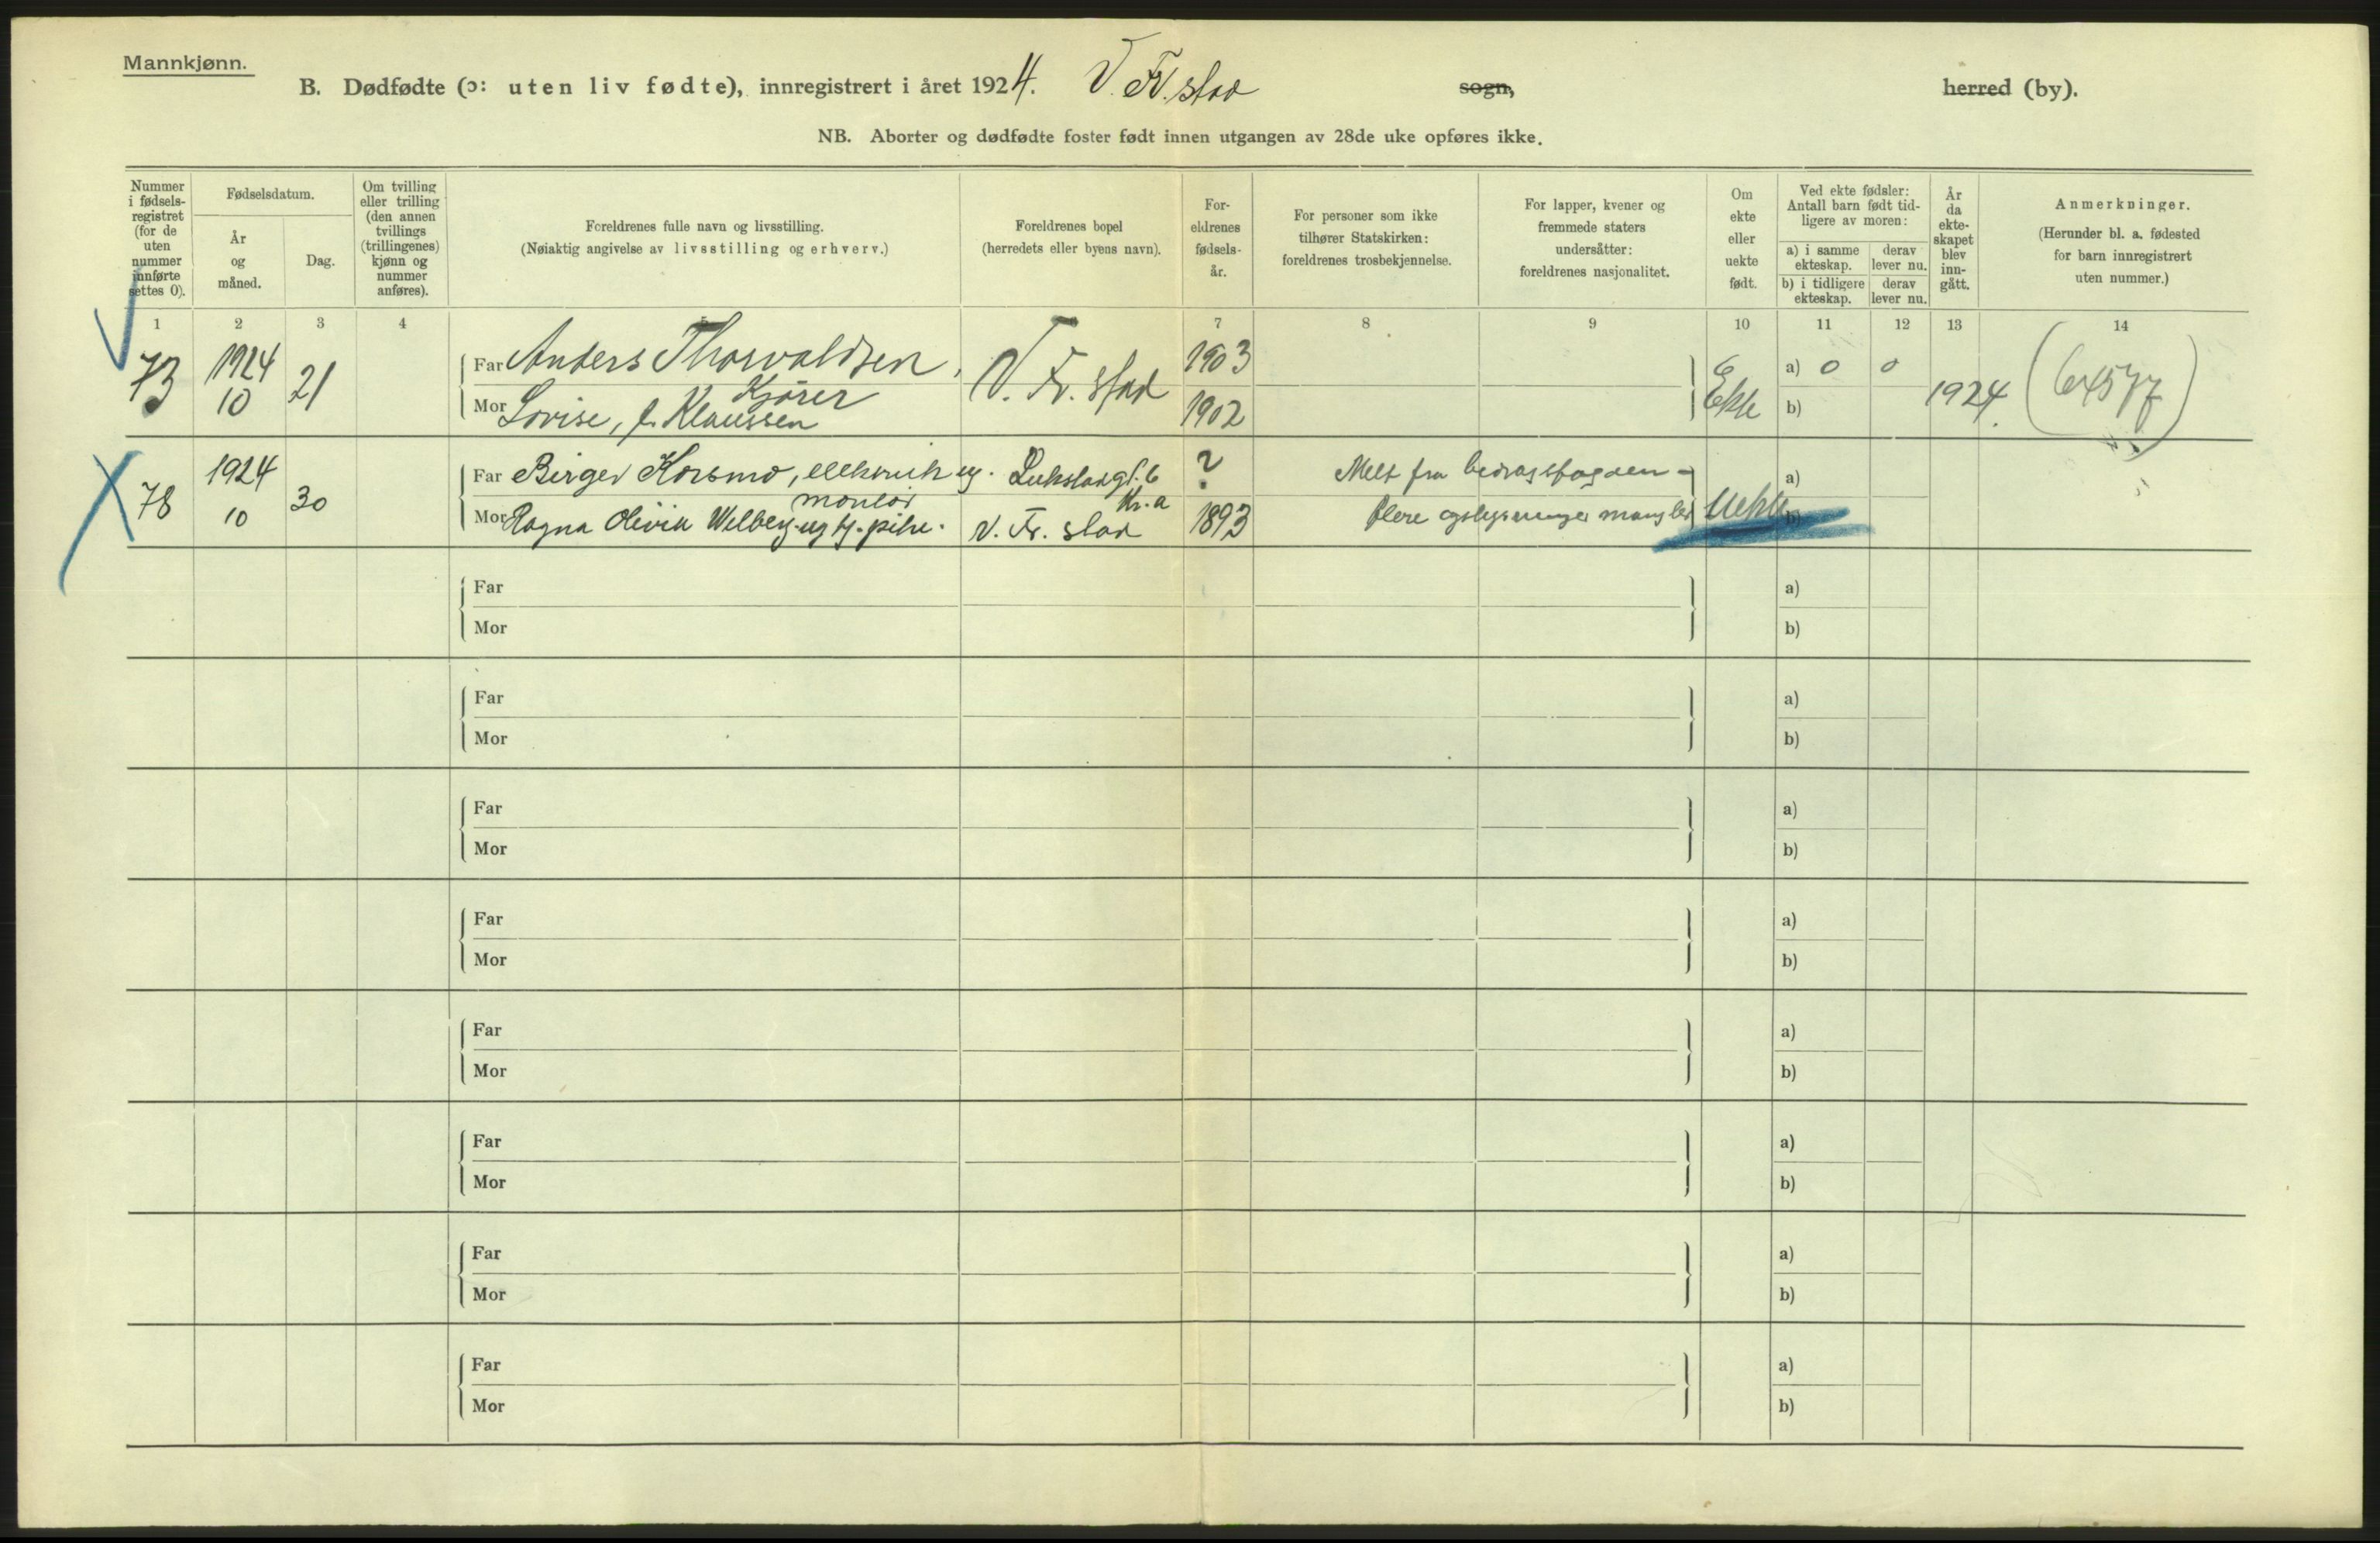 Mannkjønn.
B. Dødfødte (ɔ: uten liv fødte), innregistrert i året 1924. V. Fr. stad sogn, herred (by).
NB. Aborter og dødfødte foster født innen utgangen av 28de uke opføres ikke.
Nummer
i fødsels-
registret
(for de
uten
nummer
innførte
settes 0).
Fødselsdatum.
År
og
måned.
Dag.
Om tvilling
eller trilling
(den annen
tvillings
(trillingenes)
kjønn og
nummer
anføres).
Foreldrenes fulle navn og livsstilling.
(Nøiaktig angivelse av livsstilling og erhverv.)
Foreldrenes bopel
(herredets eller byens navn).
For-
eldrenes
fødsels-
år.
For personer som ikke
tilhører Statskirken:
foreldrenes trosbekjennelse.
For lapper, kvener og
fremmede staters
undersåtter:
foreldrenes nasjonalitet.
Om
ekte
eller
uekte
født.
Ved ekte fødsler:
Antall barn født tid-
ligere av moren:
a) i samme
ekteskap.
derav
lever nu.
b) i tidligere
ekteskap.
derav
lever nu.
År
da
ekte-
skapet
blev
inn-
gått.
Anmerkninger.
(Herunder bl. a. fødested
for barn innregistrert
uten nummer.)
1 2 3 4 5 7 8 9 10 11 12 13 14
73 1924 10 21
Far Anders Thorvaldsen,
Kjører
Mor Lovise, f. Klaussen
V. Fr. stad
1903
1902
Ekte a) 0 0
b)
1924.
(64577)
78 1924 10 30
Far Birger Korsmo, elektrik ug.
montør
Mor Ragna Olivia Welberg, ug tj. pike.
Kr.a
V. Fr. stad
?
1893
Melt fra bidragsfogden -
flere oplysninger mangler
Uekte a)
b)
Far a)
Mor b)
Far a)
Mor b)
Far a)
Mor b)
Far a)
Mor b)
Far a)
Mor b)
Far a)
Mor b)
Far a)
Mor b)
Far a)
Mor b)